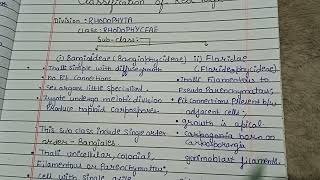 Classification of Red Algae
Division :- RHODOPHYTA
Class:- RHODOPHYCEAE
Sub-class:-
(i) Bangioideae (Bangiophycideae) ii) Floridae
(Florideophycideae)
• Thalli simple with diffuse growth
• No Pit connections
• Thalli filamentous to
Pseudo Parenchymatous,
• Sex organs little specialised
• Zygote undergo meiotic division
• Pit connections Present b/w
adjacent cells;
Produce haploid carpospores.
• growth is apical.
• This sub class include single order
• carpogonia born on
order - Bangiales.
carposporangia
• Thalli unicellular, colonial,
gonimoblast filaments.
filamentous or Parenchymatous,
cell with single